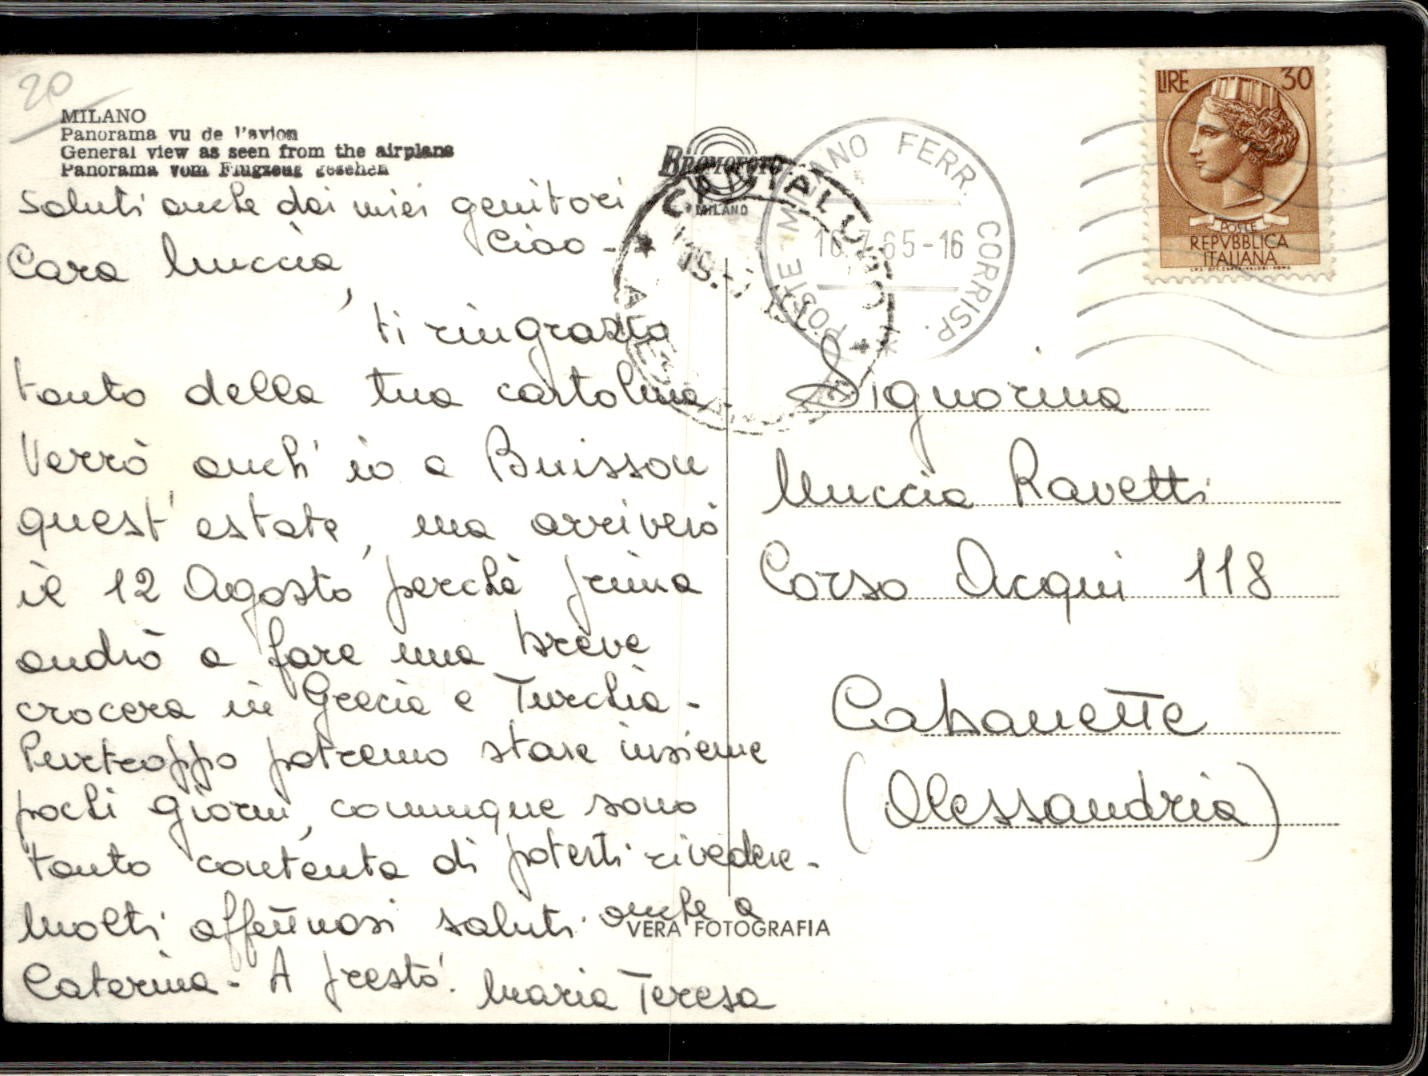 20
MILANO
Panorama vu de l'avion
General view as seen from the airplane
Panorama vom Flugzeug gesehen
BROMOFOTO
MILANO
POSTE MILANO FERR. CORRISP.
16.7.65-16
LIRE 30
POSTE
REPVBBLICA
ITALIANA
Saluti anche dai miei genitori
Ciao -
Cara Muccia,
ti ringrazio
tanto della tua cartolina.
Verrò anch'io a Buisson
quest'estate, ma arriverò
il 12 Agosto perchè prima
andrò a fare una breve
crocera in Grecia e Turchia -
Purtroppo potremo stare insieme
pochi giorni, comunque sono
tanto contenta di poterti rivedere -
Molti affettuosi saluti anche a
Caterina - A presto! Maria Teresa
Signorina
Muccia Ravetti
Corso Acqui 118
Cabanette
(Alessandria)
VERA FOTOGRAFIA